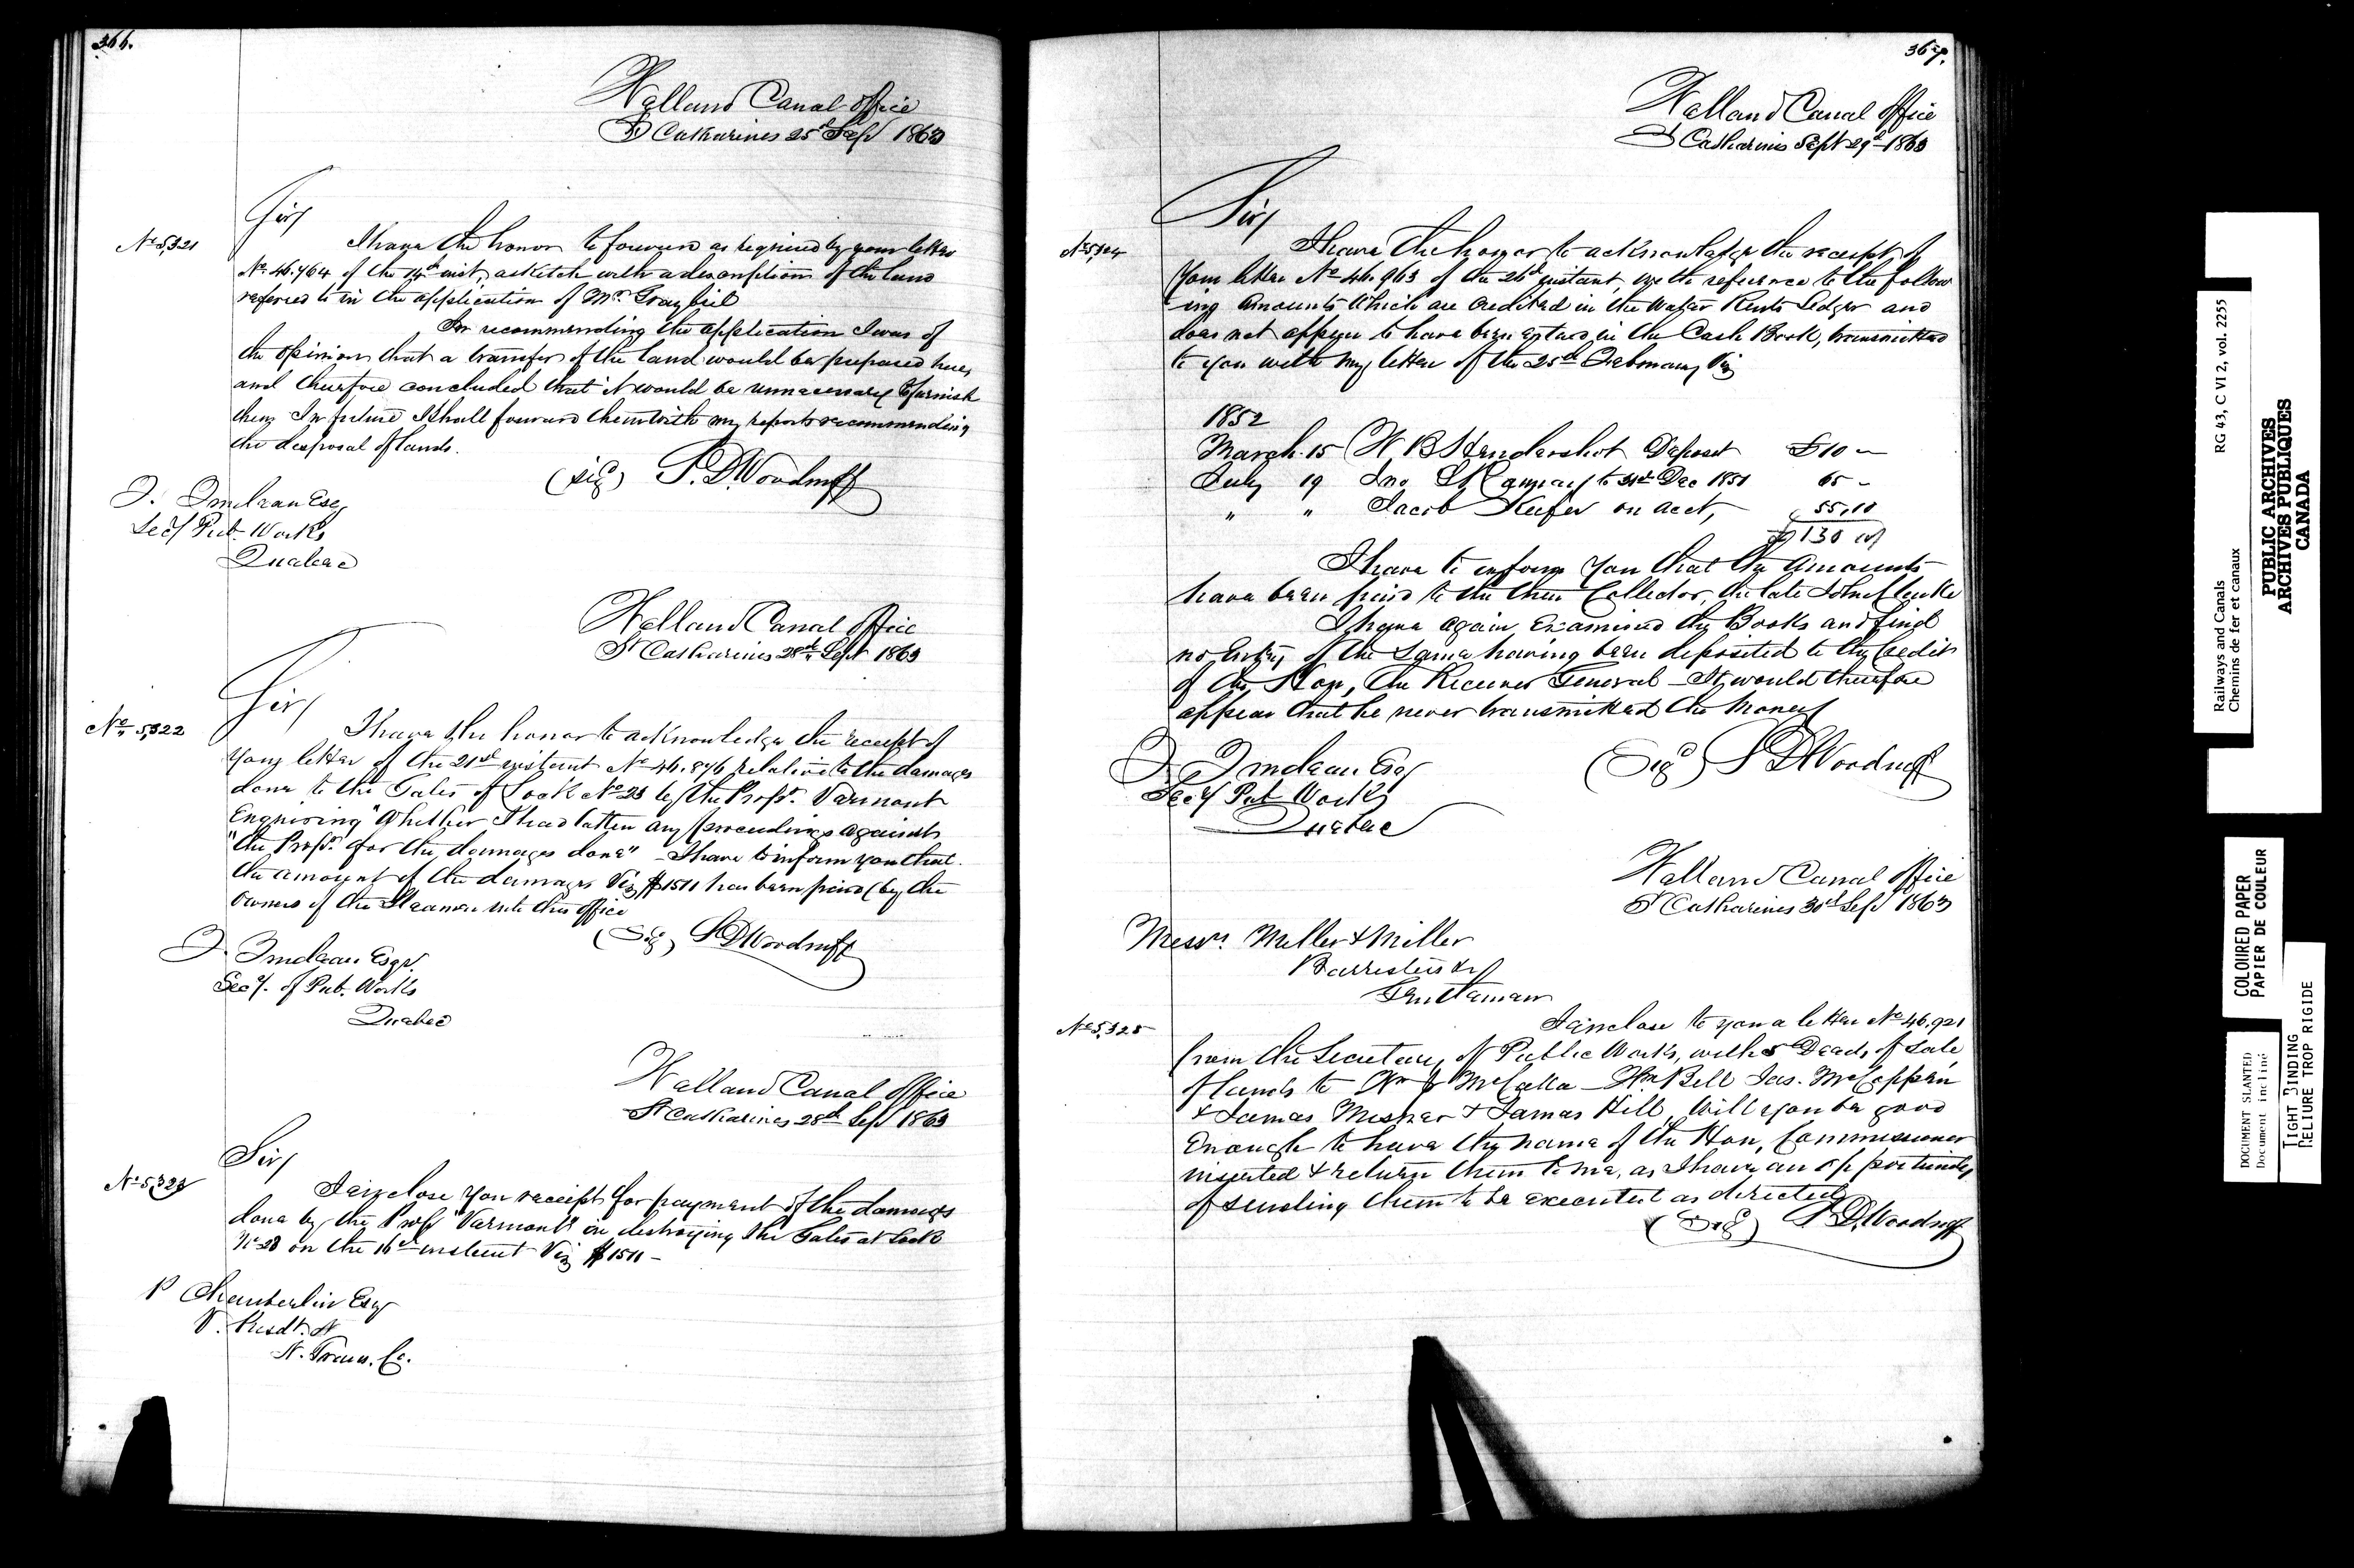 366.
Welland Canal Office
St Catharines 25th Sept 1863
Sir,
No 5,321
I have the honor to forward as required by your letter
No. 46.764 of the 14th inst, a sketch with a description of the land
referred to in the application of Mr. Graybiel
In recommending the application I was of
the opinion that a transfer of the land would be prepared here,
and therefore concluded that it would be unnecessary to furnish
them, In future I shall forward them with my reports recommending
the disposal of lands.
(sigd) S. D. Woodruff
T. Trudeau Esq,
Secy Pub. Works
Quebec
Welland Canal Office
St Catharines 28th Sept 1863
Sir,
No 5,322
I have the honor to acknowledge the receipt of
your letter of the 21st instant No 46.876 relative to the damages
done to the Gates of Lock No 23 by the Propr. Vermont
Enquiring "Whether I had taken any proceedings against
"the Propr. for the damages done" - I have to inform you that
the amount of the damages Viz $1511 has been paid by the
owners of the Steamer into this office
(Sigd) S D Woodruff
T. Trudeau Esqr.
Secy. of Pub. Works
Quebec
Welland Canal Office
St Catharines 28th Sept 1863
Sir,
No 5,323
I enclose you receipt for payment of the damages
done by the Propr "Vermont" in destroying the Gates at Lock
No 23 on the 16th instant Viz $1511 -
P Chamberlin Esqr
V. Presdt. N
N. Trans. Co.
367.
Welland Canal Office
St Catharines Sept 29th 1863
Sir,
No 5,324
I have the honor to acknowledge the receipt of
your letter No 46.963 of the 26th instant, with reference to the follow
ing amounts which are credited in the Water Rents Ledger and
does not appear to have been entered in the Cash Book, transmitted
to you with my letter of the 25th February, Viz
1852
March 15 W. B Hendershot Deposit £10 -
July 19 Jno. S Ramsay to 31st Dec 1851 65 -
" " Jacob Keefer on acct, 55,10
£130 10/
I have to inform you that the amounts
have been paid to the then Collector, the late John Clarke
I have again Examined the Books and find
no Entry of the Same having been deposited to the Credit
of the Hon, the Receiver General - It would therefore
appear that he never transmitted the Money
(Sigd) S D Woodruff
T. Trudeau Esq
Secy Pub Works
Quebec
Welland Canal Office
St Catharines 30th Sept 1863
Messrs. Miller & Miller
Barristers &c
Gentlemen
No 5,325
I enclose to you a letter No 46.921
from the Secretary of Public Works, with 5 Deeds of Sale
of lands to Wm McCalla - Wm Bell Jas. McCoppen
& James Misener & James Hill, Will you be good
Enough to have the name of the Hon, Commissioner
inserted & return them to me, as I have an opportunity
of sending them to be executed as directed
(Sigd) S. D. Woodruff
RG 43, C VI 2, vol. 2255
Railways and Canals
Chemins de fer et canaux
PUBLIC ARCHIVES
ARCHIVES PUBLIQUES
CANADA
COLOURED PAPER
PAPIER DE COULEUR
DOCUMENT SLANTED
Document incliné
TIGHT BINDING
RELIURE TROP RIGIDE